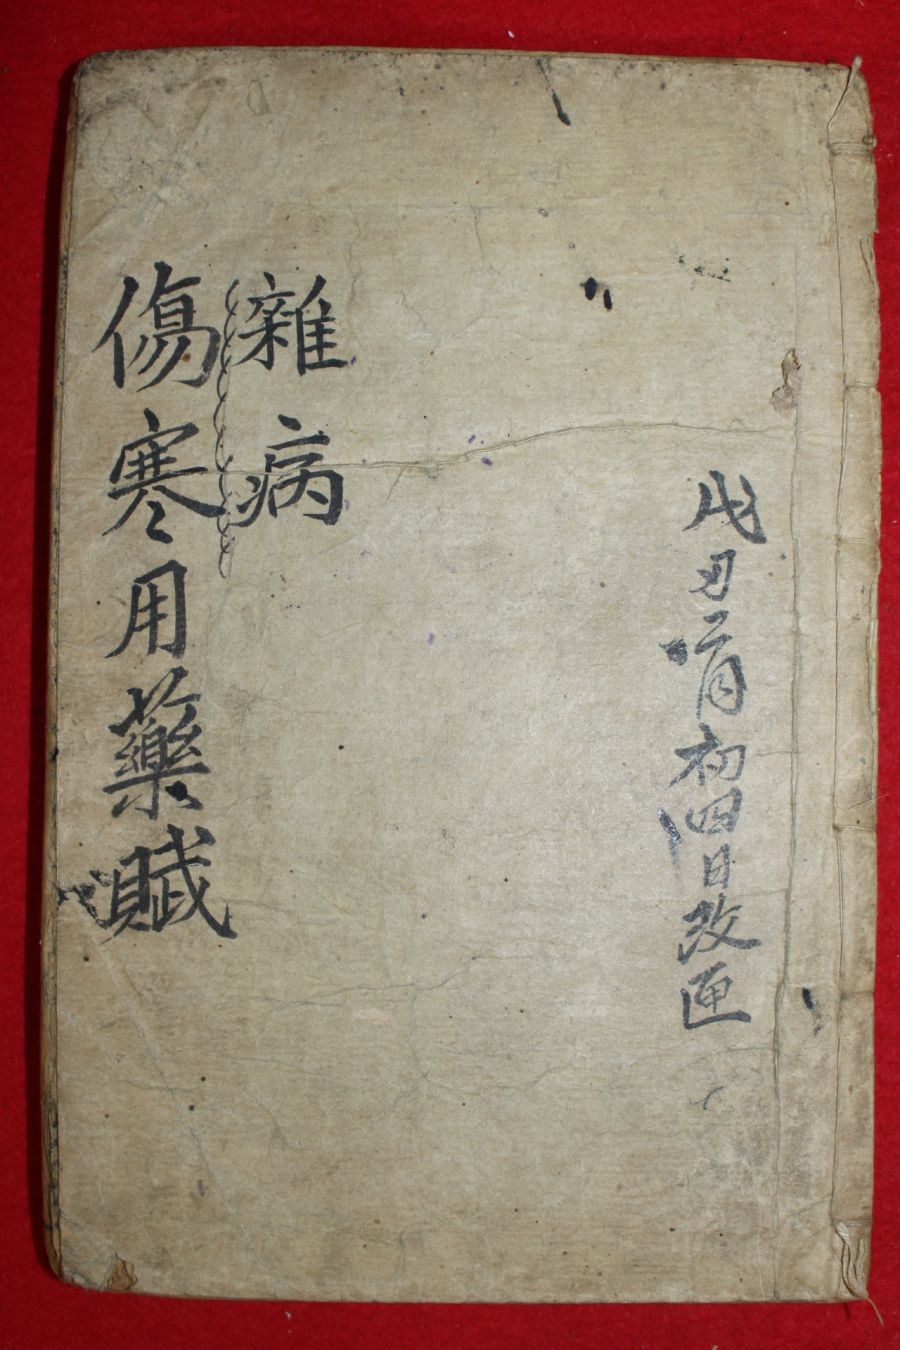 戊丑二月初四日改匣
雜病
傷寒用藥賦